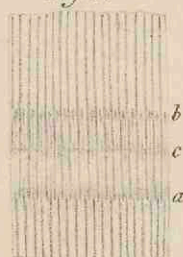 b
c
a